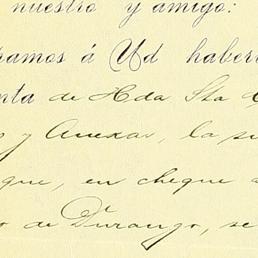 nuestro y amigo:
ramos á Ud haber
nta de Hda Sta
y Anexas, la su
que, en cheque
o de Durango, se